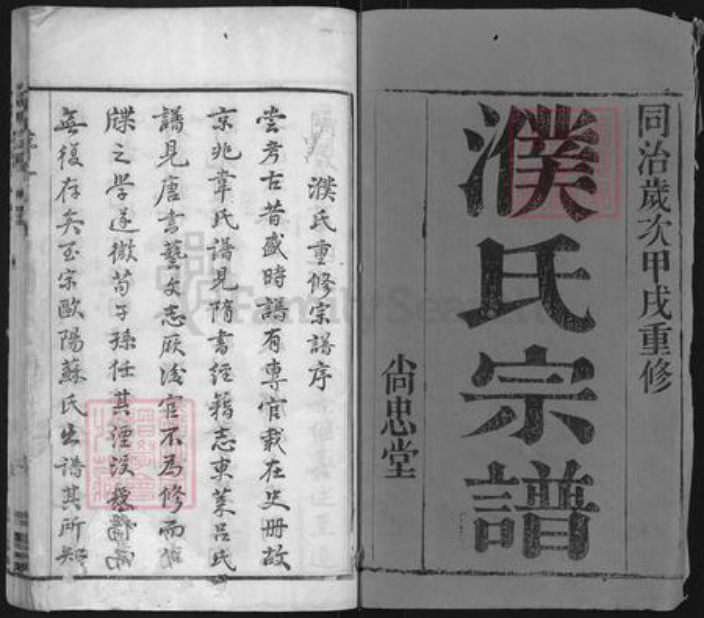 同治歲次甲戌重修
濮氏宗譜
尙忠堂
濮氏重修宗譜序
嘗考古昔盛時譜有專官載在史冊故
京兆韋氏譜見隋書經籍志東萊呂氏
譜見唐書藝文志厥後官不為修而
牒之學遂微苟子孫任其湮沒
無復存矣至宗歐陽蘇氏出譜其所知
FamilySearch